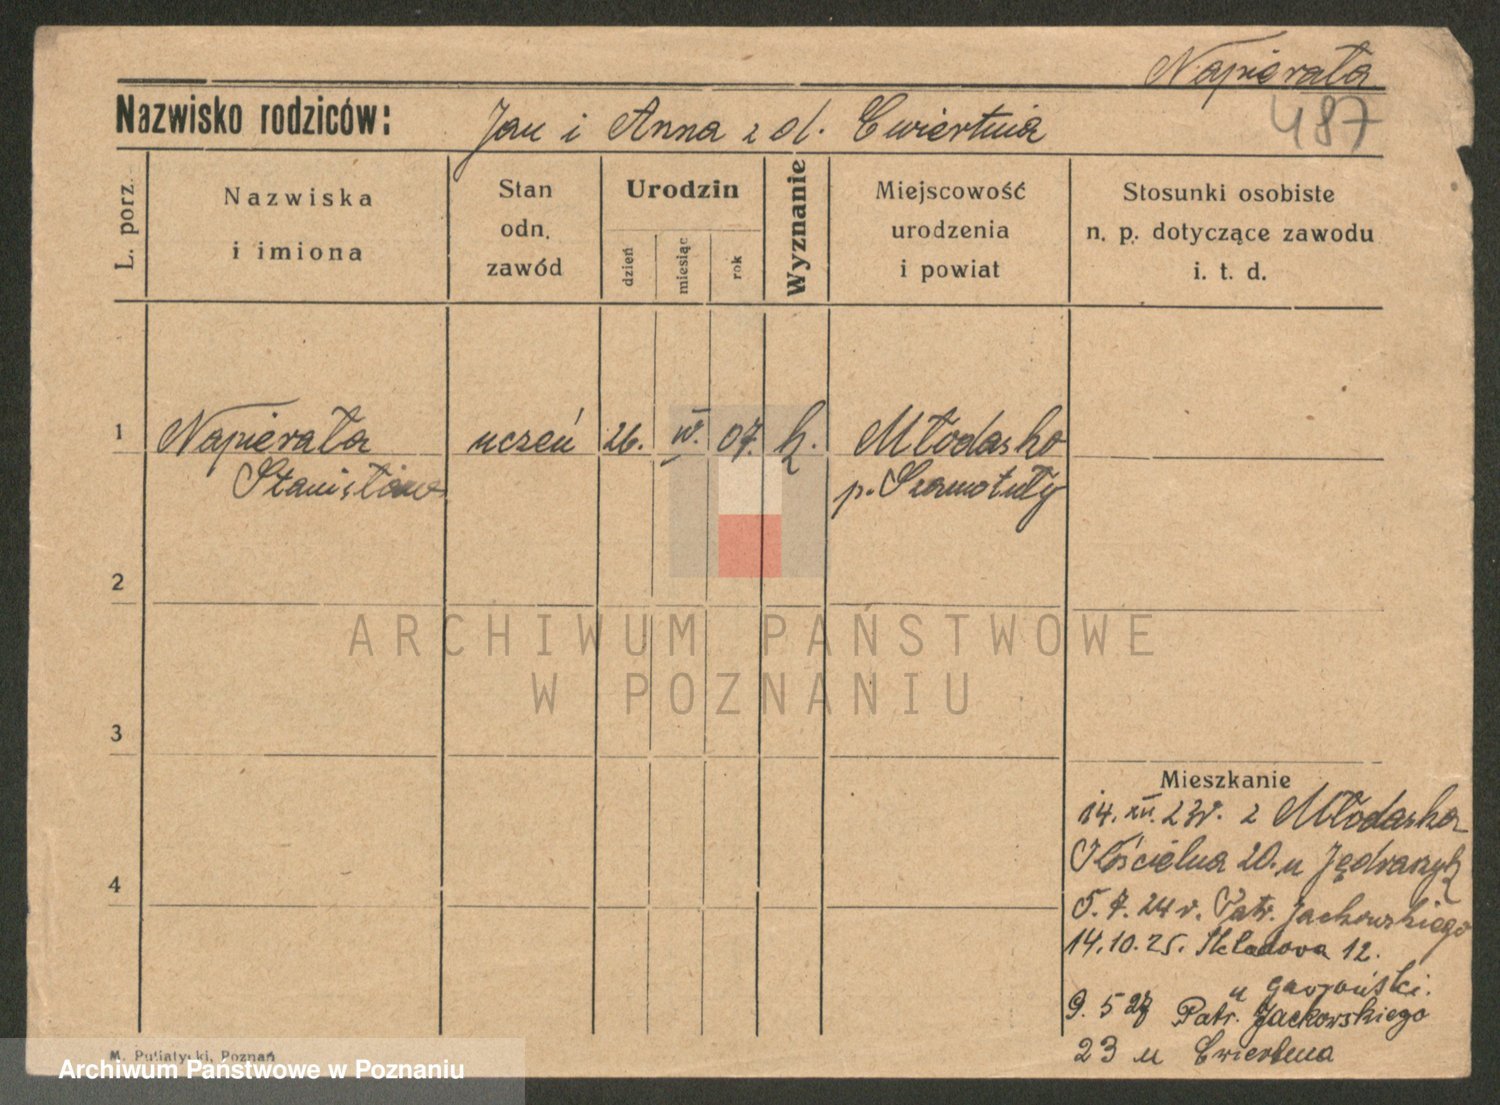 Napierała
487
Nazwisko rodziców: Jan i Anna z d. Ćwiertnia
L. porz.
Nazwiska
i imiona
Stan
odn.
zawód
Urodzin
dzień
miesiąc
rok
Wyznanie
Miejscowość
urodzenia
i powiat
Stosunki osobiste
n. p. dotyczące zawodu
i. t. d.
1 Napierała uczeń 26. IV. 07. k. Młodasko
Stanisław p. Szamotuły
2
ARCHIWUM PAŃSTWOWE
W POZNANIU
3
Mieszkanie
14. XII. 23r. z Młodaska
Kościelna 20. u Jędraszyk
4
5. 7. 24 r. Patr. Jackowskiego
14.10.25. Składowa 12.
u
9. 5 27 Patr. Jackowskiego
23 u Ćwiertnia
M. Putiatycki, Poznań
Archiwum Państwowe w Poznaniu